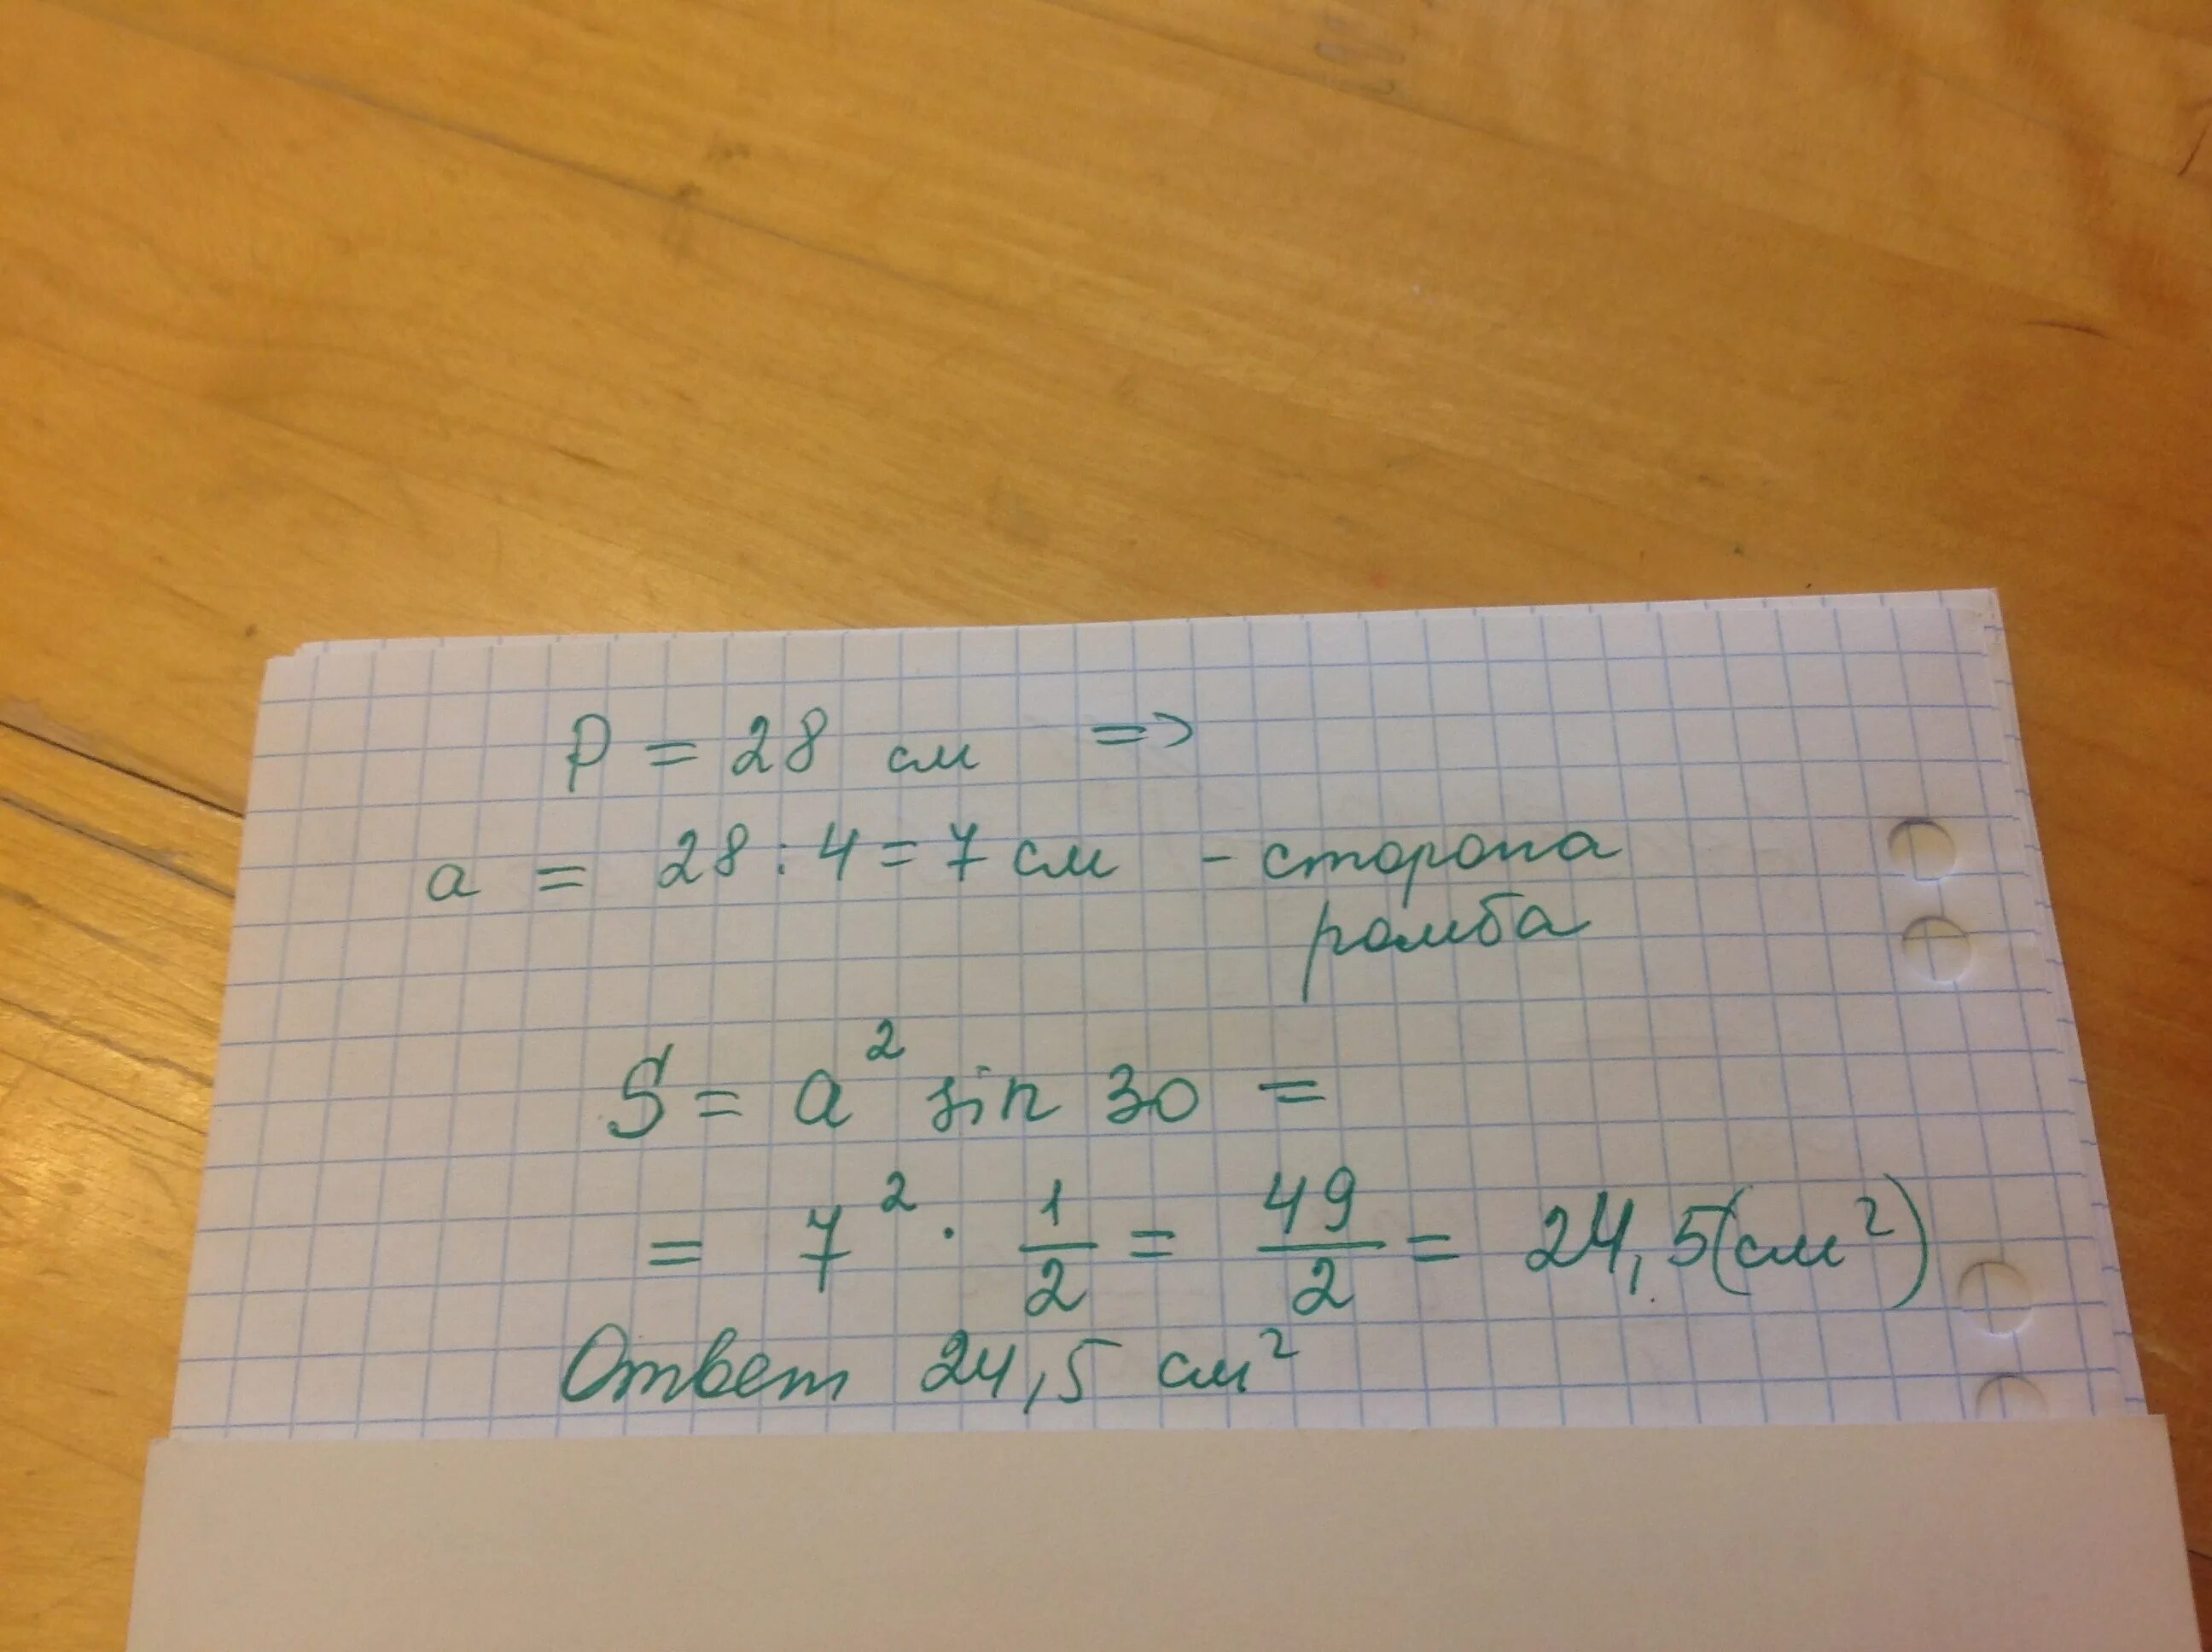 P = 28 см =>
a = 28 : 4 = 7 см - сторона
ромба
S = a² sin 30 =
= 7² · 1/2 = 49/2 = 24,5 (см²)
Ответ 24,5 см²